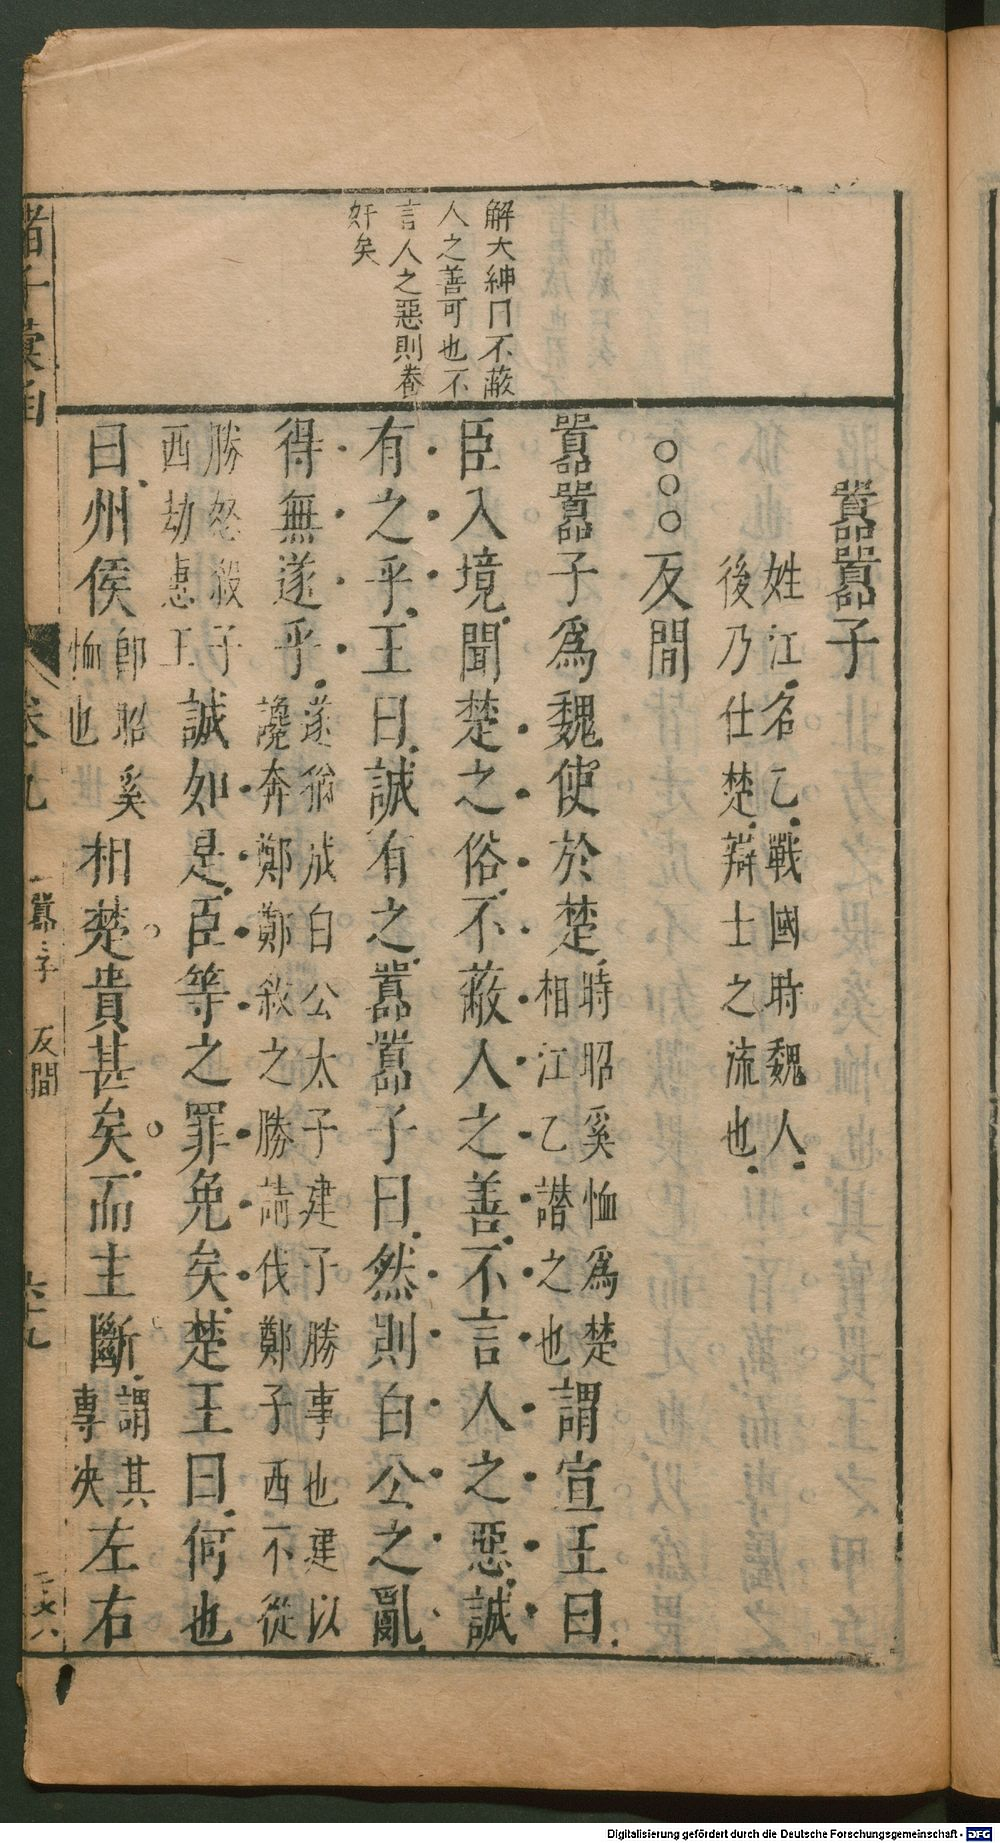 囂囂子
姓江名乙戰國時魏人
後乃仕楚辯士之流也
○○○反間
囂囂子爲魏使於楚時昭奚恤爲楚相江乙譖之也謂宣王曰
臣入境聞楚之俗不蔽人之善不言人之惡誠
有之乎王曰誠有之囂囂子曰然則白公之亂
得無遂乎遂猶成白公太子建子勝事也建以讒奔鄭鄭殺之勝請伐鄭子西不從
勝怒殺子西劫惠王誠如是臣等之罪免矣楚王曰何也
曰州侯郎昭奚恤也相楚貴甚矣而主斷謂其專决左右
解大紳曰不蔽
人之善可也不
言人之惡則養
奸矣
諸子彙函
卷九
囂囂子 反間
六十九
Digitalisierung gefördert durch die Deutsche Forschungsgemeinschaft - DFG